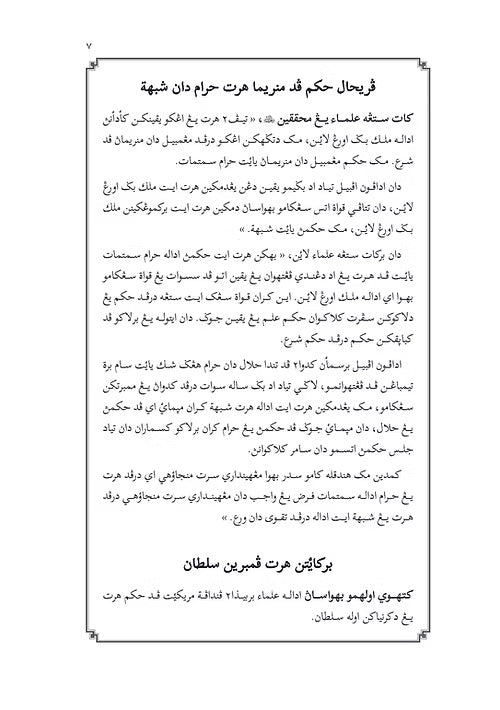 ٧
ڤريحال حكم ڤد منريما هرت حرام دان شبهة
كات ستڠه علماء يڠ محققين ، « تيڤ٢ هرت يڠ اڠكو يقينكن كأدأنڽ
اداله ملك بݢ اورڠ لاين، مک دتݢهكن اڠكو درڤد مڠمبيل دان منريماڽ ڤد
شرع. مک حكم مڠمبيل دان منريماڽ يائيت حرام سمتمات.
دان اداڤون اڤبيل تياد اد بݢيمو يقين دڠن يڠدمكين هرت ايت ملك بݢ اورڠ
لاين، دان تتاڤي قواة اتس سڠكامو بهواسڽ دمكين هرت ايت بركموڠكينن ملك
بݢ اورڠ لاين، مک حكمڽ يائيت شبهة. »
دان بركات ستڠه علماء لاين، « بهكن هرت ايت حكمڽ اداله حرام سمتمات
يائيت ڤد هرت يڠ اد دڠندي ڤڠتهوان يڠ يقين اتو ڤد سسوات يڠ قواة سڠكامو
بهوا اي اداله ملك اورڠ لاين. اين كران قواة سڠک ايت ستڠه درڤد حكم يڠ
دلاكوكن سڤرت كلاكوان حكم علم يڠ يقين جوݢ. دان ايتوله يڠ برلاكو ڤد
كباڽقكن حكم درڤد حكم شرع.
اداڤون اڤبيل برسمأن كدوا٢ ڤد تندا حلال دان حرام هڠݢ شك يائيت سام برة
تيمباڠن ڤد ڤڠتهوانمو، لاݢي تياد اد بݢ ساله سوات درڤد كدواڽ يڠ ممبرتكن
سڠكامو، مک يڠدمكين هرت ايت اداله هرت شبهة كران مڽمائي اي ڤد حكمڽ
يڠ حلال، دان مڽمائي جوݢ ڤد حكمڽ يڠ حرام كران برلاكو كسماران دان تياد
جلس حكمڽ اتسمو دان سامر كلاكوانڽ.
كمدين مک هندقله كامو سدر بهوا مڠهينداري سرت منجاؤهي اي درڤد هرت
يڠ حرام اداله سمتمات فرض يڠ واجب دان مڠهينداري سرت منجاؤهي درڤد
هرت يڠ شبهة ايت اداله درڤد تقوى دان ورع. »
بركائيتن هرت ڤمبرين سلطان
كتهوي اولهمو بهواسڽ اداله علماء بربيذا٢ ڤنداڤة مريكئيت ڤد حكم هرت
يڠ دكرنياكن اوله سلطان.